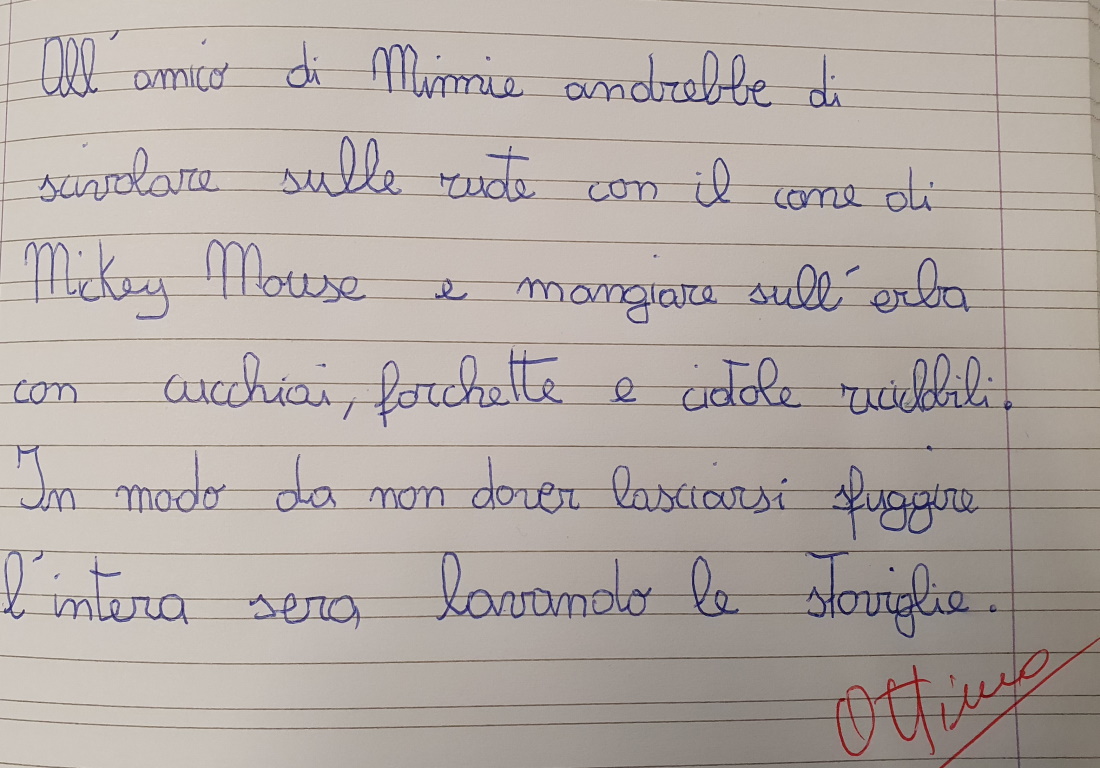 All'amico di Minnie andrebbe di
scivolare sulle ruote con il cane di
Mickey Mouse e mangiare sull'erba
con cucchiai, forchette e ciotole riciclabili.
In modo da non dover lasciarsi sfuggire
l'intera sera lavando le stoviglie.
Ottimo